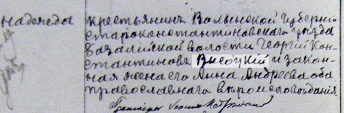 Надежда
Крестьянинъ Волынской губерніи
Староконстантиновскаго уѣзда
Базалійской волости Георгій Кон-
стантиновъ Высоцкій и закон-
ная жена его Анна Андреева оба
православнаго вѣроисповѣданія.